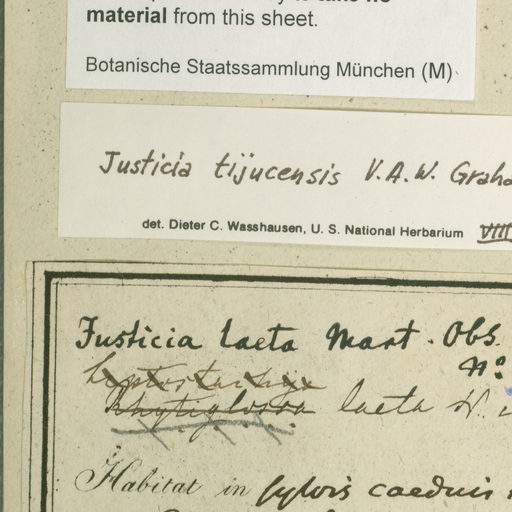 material from this sheet.
Botanische Staatssammlung München (M)
Justicia tijucensis V.A.W. Graha
det. Dieter C. Wasshausen, U. S. National Herbarium VIII
Justicia laeta Mart. Obs.
Nº
Rhytiglossa laeta N.
Habitat in sylvis caeduis